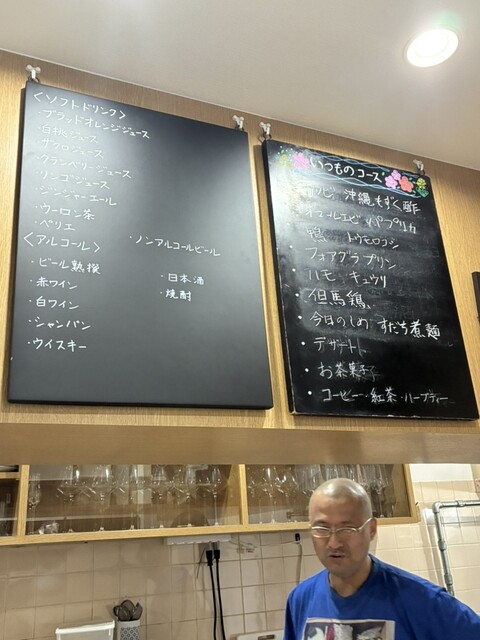 <ソフトドリンク>
・ブラッドオレンジジュース
・白桃ジュース
・ザクロジュース
・クランベリージュース
・リンゴジュース
・ジンジャーエール
・ウーロン茶
・ペリエ
<アルコール>
・ノンアルコールビール
・ビール熟撰
・日本酒
・赤ワイン
・焼酎
・白ワイン
・シャンパン
・ウイスキー
いつものコース
沖縄もずく酢
オマールエビ パプリカ
鴨 トウモロコシ
・フォアグラプリン
・ハモ キュウリ
・但馬鶏
・今日のしめ すだち煮麺
・デザート
・お茶菓子
・コーヒー・紅茶・ハーブティー